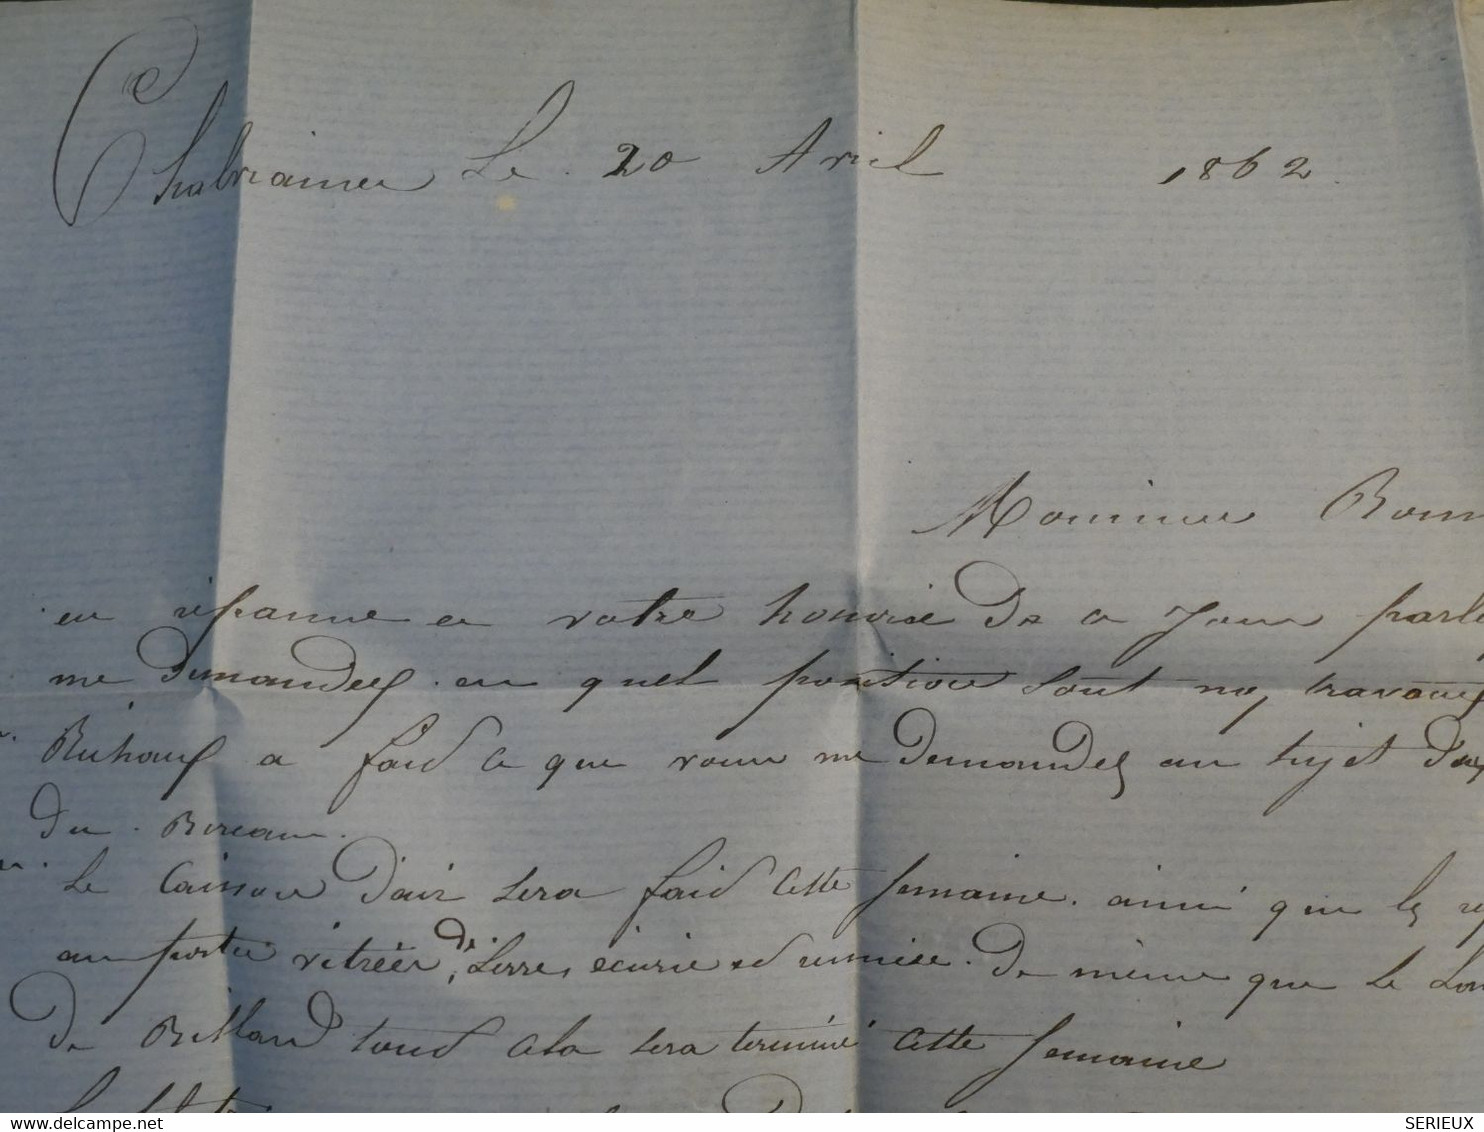 Chabraimer Le 20 Avril 1862
Monsieur Bonn
en reponse a votre honnoré De ce Jour parle
me Demandés en quel position sont nos travaux
a faid ce que vous me Demandes au sujet
du Bureau.
Le Caisson D'air sera faid Cette semaine. ainsi que les
au portes vitrées, de serre, écurie ed remise. De même que le
De Billard toud cela sera terminé Cette semaine
SERIEUX